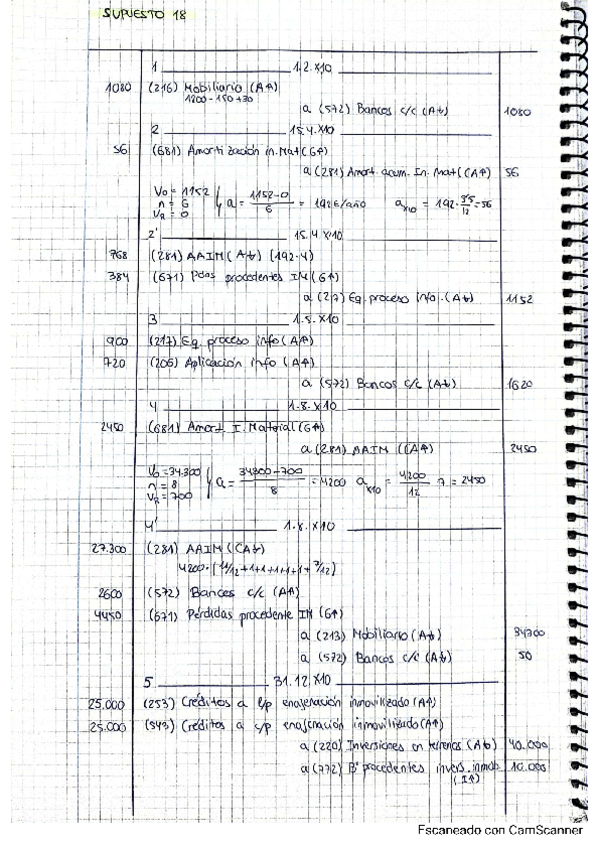 SUPUESTO 18
1 1.2.X10
1080 (216) Mobiliario (A↑)
1200 - 150 + 30
a (572) Bancos c/c (A↓) 1080
2 15.4.X10
56 (681) Amortización in. Mat (G↑)
a (281) Amort. acum. In. Mat ((A↑) 56
V0 = 1152
n = 6
VR = 0
a = 1152-0 / 6 = 192 €/año
aX10 = 192 · 3'5 / 12 = 56
2' 15.4 X10
768 (281) AAIM (A↓) (192·4)
384 (671) Pdas procedentes IM (G↑)
a (217) Eq. proceso info. (A↓) 1152
3 1.5.X10
900 (217) Eq. proceso info (A↑)
720 (206) Aplicación info (A↑)
a (572) Bancos c/c (A↓) 1620
4 1.8.X10
2450 (681) Amort I. Material (G↑)
a (281) AAIM ((A↑) 2450
V0 = 34.300
n = 8
VR = 700
a = 34300-700 / 8 = 4200
aX10 = 4200 / 12 · 7 = 2450
4' 1.8.X10
27.300 (281) AAIM (CA↓)
4200 · [11/12 +1+1+1+1+1+ 7/12]
2600 (572) Bancos c/c (A↑)
4450 (671) Pérdidas procedente IM (G↑)
a (213) Mobiliario (A↓) 34300
a (572) Bancos c/c (A↓) 50
5 31.12.X10
25.000 (253) Créditos a l/p enajenación inmovilizado (A↑)
25.000 (543) Créditos a c/p enajenación inmovilizado (A↑)
a (220) Inversiones en terrenos (A↓) 40.000
a (772) Bº procedentes invers. inmob. 10.000
(I↑)
Escaneado con CamScanner